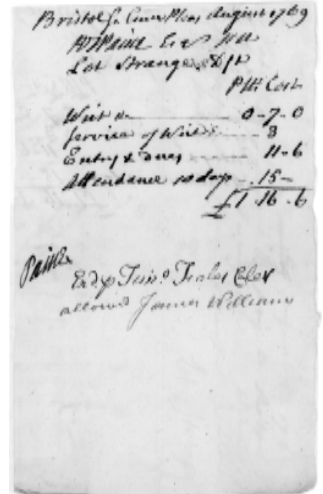 Bristol ss Com Pleas August 1769
RT Paine Esq
Lot Strange Dft
Plts Cost
Writ &c 0-7-0
Service of Writ 3
Entry & Duty 11-6
Attendance 10 days 15-
£1.16.6
Paine
allowed James Williams